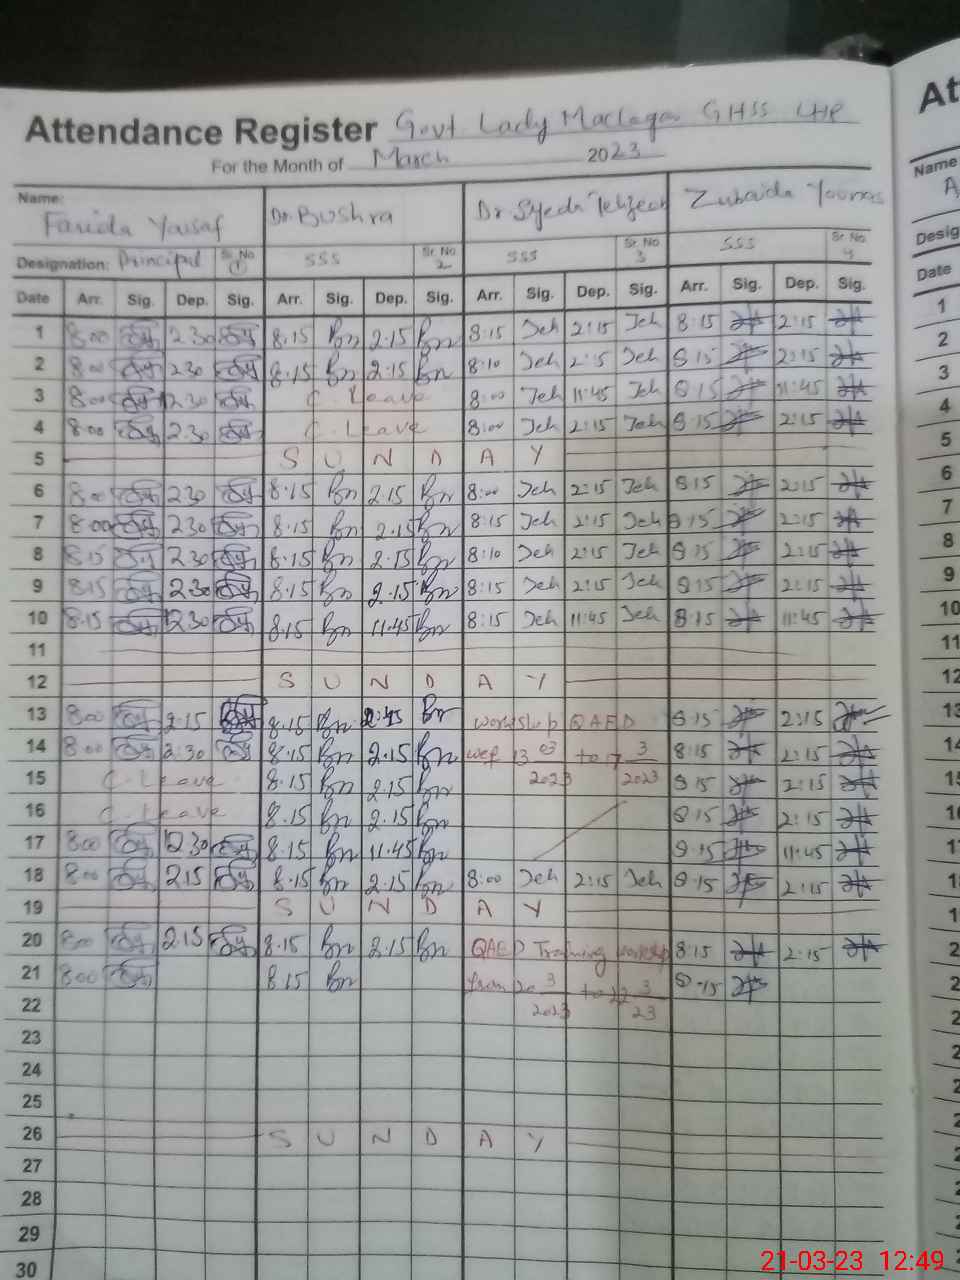 Attendance Register Govt Lady Maclagan GHSS LHR
For the Month of March 2023
Name: Farida Yousaf Dr Bushra Dr Syeda Zubaida
Designation: Principal Sr. No 1 SSS Sr. No 2 SSS Sr. No 3 SSS Sr. No 4
Date Arr. Sig. Dep. Sig. Arr. Sig. Dep. Sig. Arr. Sig. Dep. Sig. Arr. Sig. Dep. Sig.
1 8:00 2.30 8.15 Bn 2.15 Bn 8:15 Jeh 2:15 Jeh 8:15 2:15
2 8:00 2.30 8.15 Bn 2.15 Bn 8:10 Jeh 2:15 Jeh 8:15 2:15
3 8:00 12.30 C. Leave 8:00 Jeh 11:45 Jeh 8:15 11:45
4 8:00 2.30 C. Leave 8:00 Jeh 2:15 Jeh 8:15 2:15
5 S U N D A Y
6 8:00 2.30 8.15 Bn 2.15 Bn 8:00 Jeh 2:15 Jeh 8:15 2:15
7 8:00 2.30 8.15 Bn 2.15 Bn 8:15 Jeh 2:15 Jeh 8:15 2:15
8 8:15 2.30 8.15 Bn 2.15 Bn 8:10 Jeh 2:15 Jeh 8:15 2:15
9 8:15 2.30 8.15 Bn 2.15 Bn 8:15 Jeh 2:15 Jeh 8:15 2:15
10 8.15 12.30 8.15 Bn 11.45 Bn 8:15 Jeh 11:45 Jeh 8:15 11:45
11
12 S U N D A Y
13 8:00 2:15 8.15 Bn Bn workshop QAED 8:15 2:15
14 8:00 2:30 8.15 Bn 2.15 Bn wef 13 03/2023 to 17 3/2023 8:15 2:15
15 C. Leave 8.15 Bn 2.15 Bn 8:15 2:15
16 C. Leave 8.15 Bn 2.15 Bn 8:15 2:15
17 8:00 12.30 8.15 Bn 11.45 Bn 8:15 11:45
18 8:00 2.15 8.15 Bn 2.15 Bn 8:00 Jeh 2:15 Jeh 8:15 2:15
19 S U N D A Y
20 8:00 2.15 8.15 Bn 2.15 Bn QAED Training workshop 8:15 2:15
21 8:00 8.15 Bn from 20 3/2023 to 22 3/23 8:15
22
23
24
25
26 S U N D A Y
27
28
29
30
At
Name
A
Desig
Date
1
2
3
4
5
6
7
8
9
10
11
12
13
14
15
21-03-23 12:49